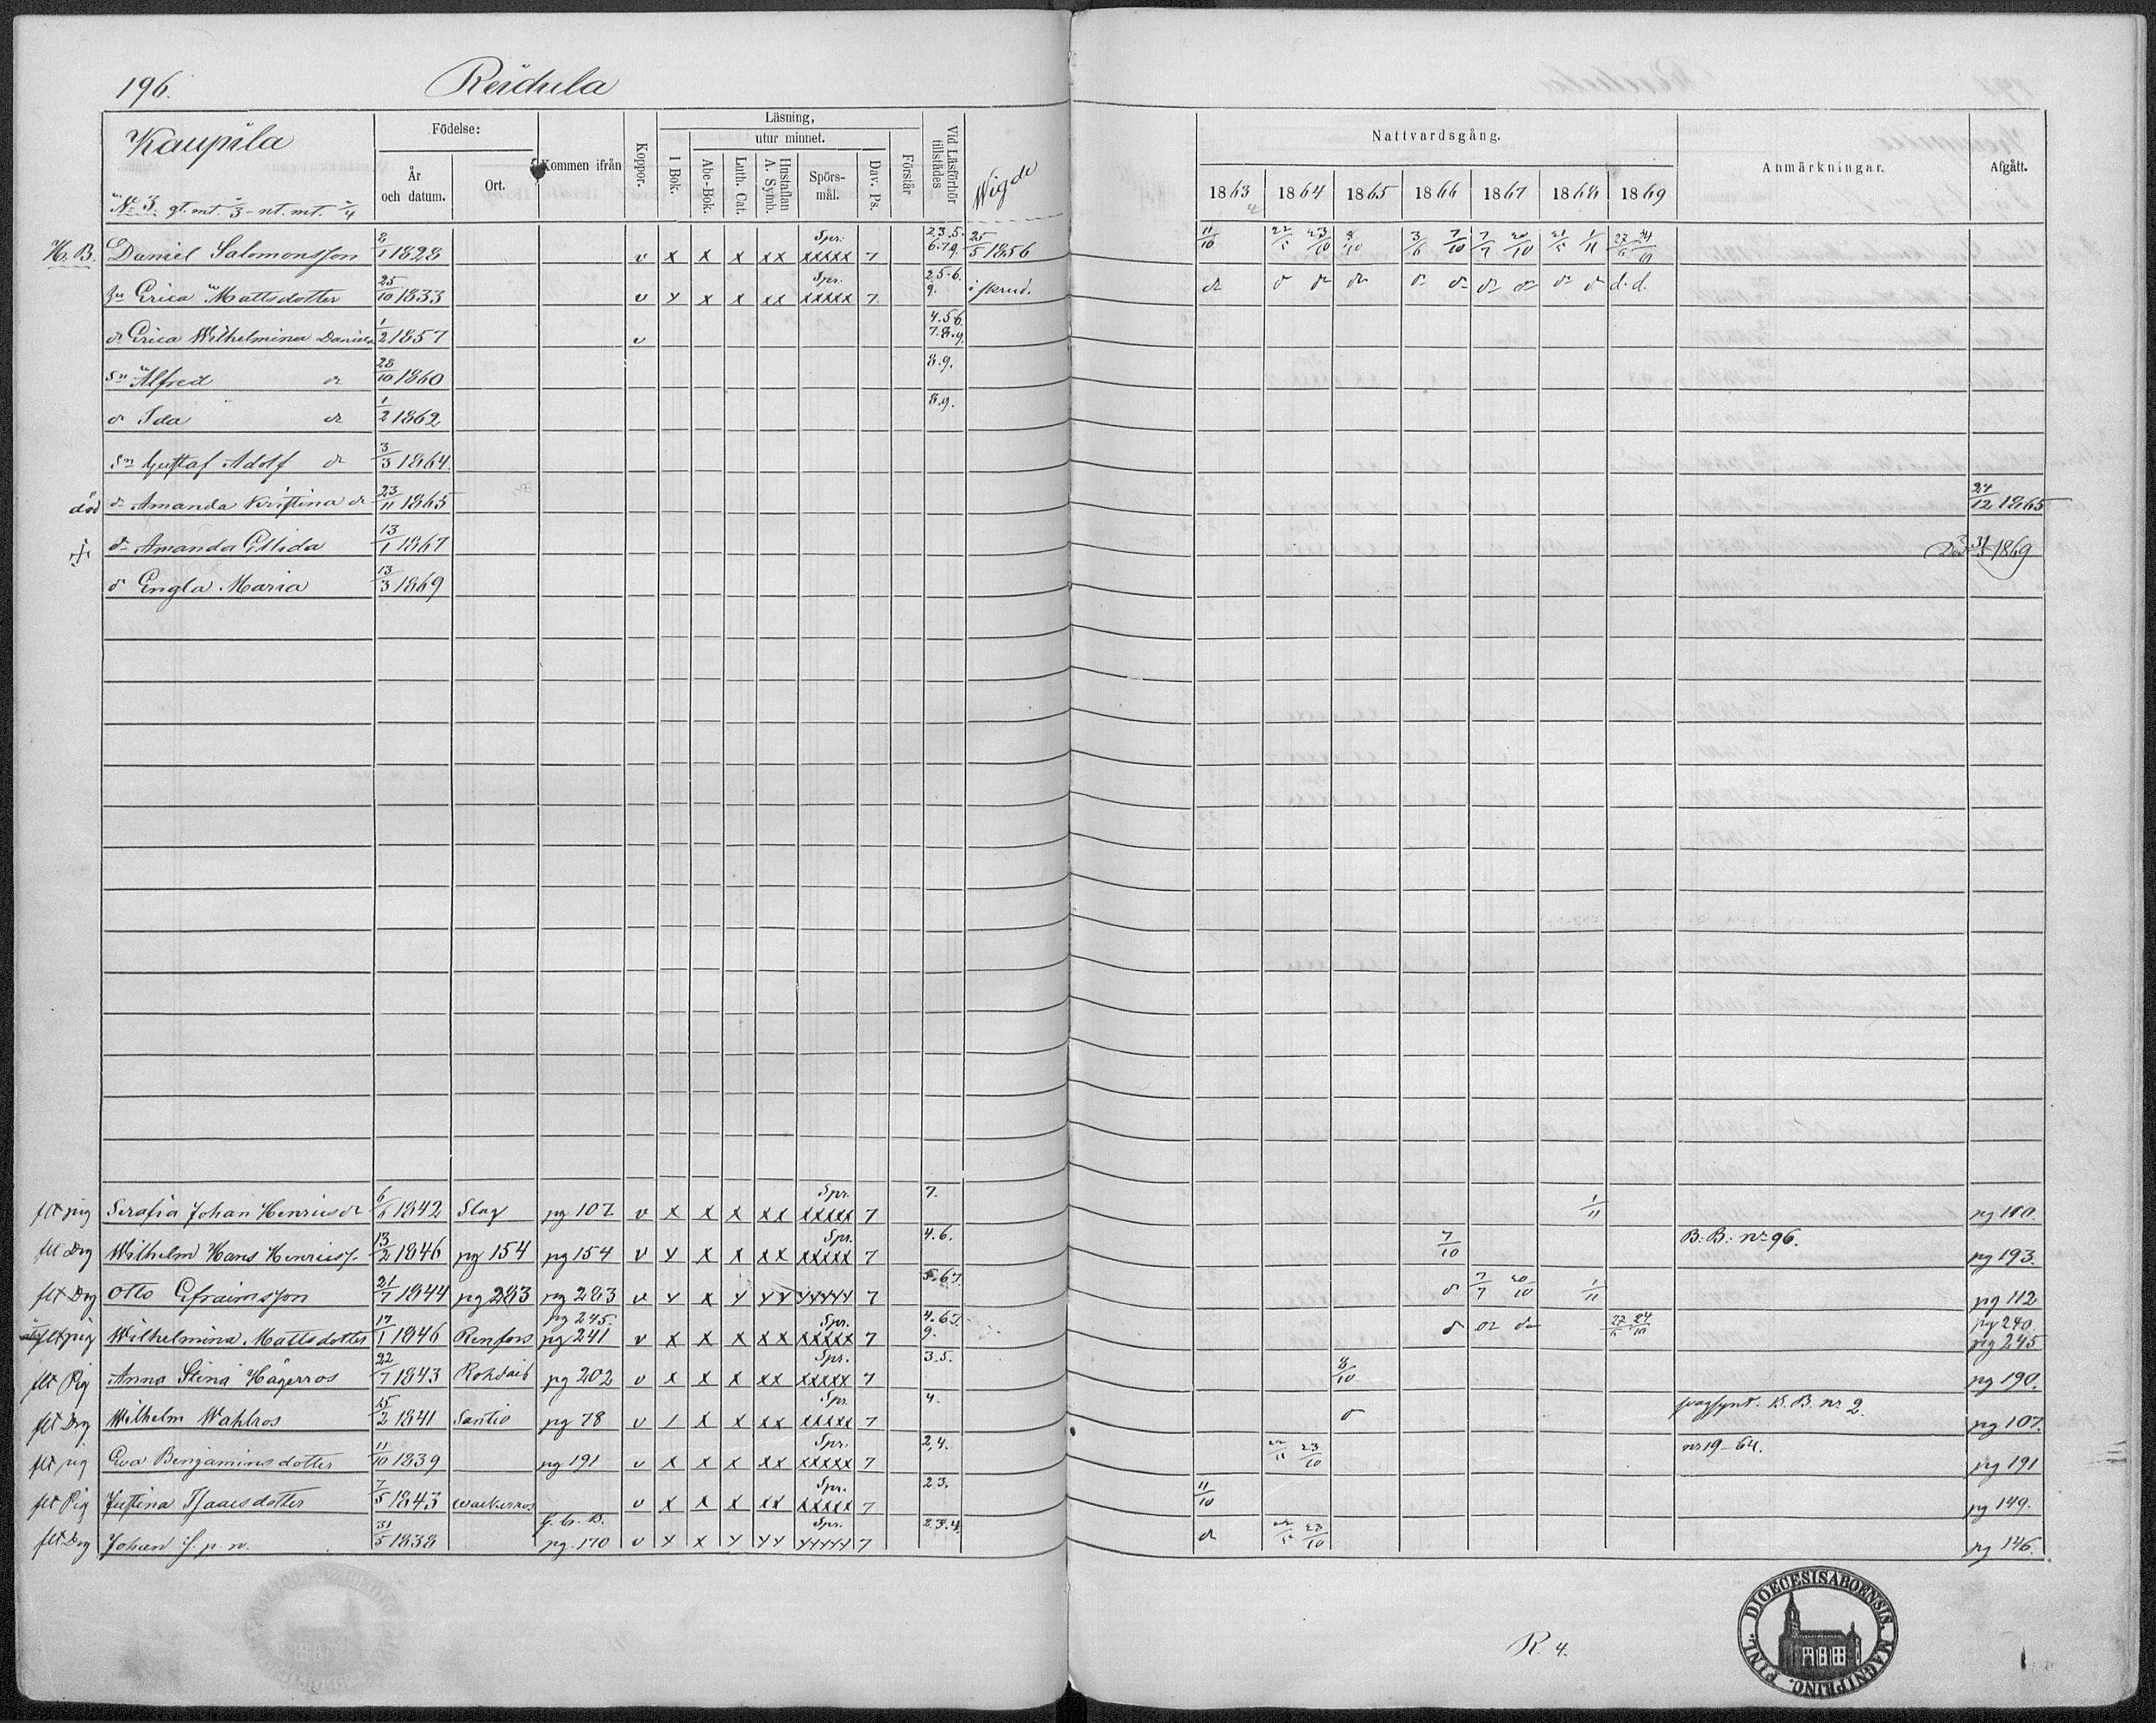 196. Reidula
Kaupila
No 3 gt. mt. 2/3 - nt. mt.
Födelse:
År och datum.
Ort.
Kommen ifrån
Koppor.
Läsning,
I Bok.
utur minnet.
Abc-Bok.
Luth. Cat.
Hustaflan A. Symb.
Spörs-mål.
Dav. Ps.
Förstår
Vid Läsförhör tillstädes
Wigde
Nattvardsgång.
1863 1864 1865 1866 1867 1868 1869
Anmärkningar.
Afgått.
H. B. Daniel Salomonsson 1828 v x x x xx Spr. xxxxx 7 2.3.5. 6.7.9. 25/5 1856 11/10 22/5 23/10 8/10 3/6 7/10 7/7 20/10 1/11
hu Erica Mattsdotter 25/10 1833 v y x x xx Spr. xxxxx 7 2.5.6. 9. d. d.
dr Erica Wilhelmina Daniels 1/2 1857 v 4.5.6. 7.8.9.
sn Alfred dr 28/10 1860 8.9.
dr Ida dr 1/2 1862 8.9.
sn Gustaf Adolf dr 3/3 1864.
död dr Amanda Kristina dr 23/11 1865 24/12 1865
+ dr Amanda 13/1 1867 Död 1869
dr Engla Maria 13/3 1869
flt pig Serafia Johan Henriksdr 6/6 1842 Slag pg 107 v x x x xx Spr. xxxxx 7 7. 1/11 pg 100.
flt Drg Wilhelm Hans Henrikss. 13/2 1846 pg 154 pg 154 v y x x xx Spr. xxxxx 7 4.6. 7/10 B. B. nr 96. pg 193.
flt Drg Otto Efraimsson 21/7 1844 pg 283 pg 283 v y x y yy yyyyy 7 5.6.7. 7/7 20/10 1/11 pg 112
flt pig Wilhelmina Mattsdotter 17/1 1846 Renfors pg 245. pg 241 v x x x xx Spr. xxxxx 7 4.6.7. 9. 24/10 pg 240. pg 245
flt Pig Anna Stina Hägerros 22/7 1843 pg 202 v x x x xx Spr. xxxxx 7 3.5. 8/10 pg 190.
flt Drg Wilhelm Wahlros 15/2 1841 Santio pg 78 v 1 x x xx Spr. xxxxx 7 4. B. B. nr 2. pg 107.
flt pig Eva Benjaminsdotter 11/10 1839 pg 191 v x x x xx Spr. xxxxx 7 2,4. 23/10 nr 19-64. pg 191
flt Pig Justina Isaacsdotter 7/5 1843 v x x x xx Spr. xxxxx 7 2.3. 11/10 pg 149.
flt Drg Johan f. p. n. 31/5 1838 pg. 170 v y x y yy Spr. yyyyy 7 2.3.4. 23/10 pg 146.
R. 4.
DIOECESIS ABOENSIS MAGNI PRINC. FINL.